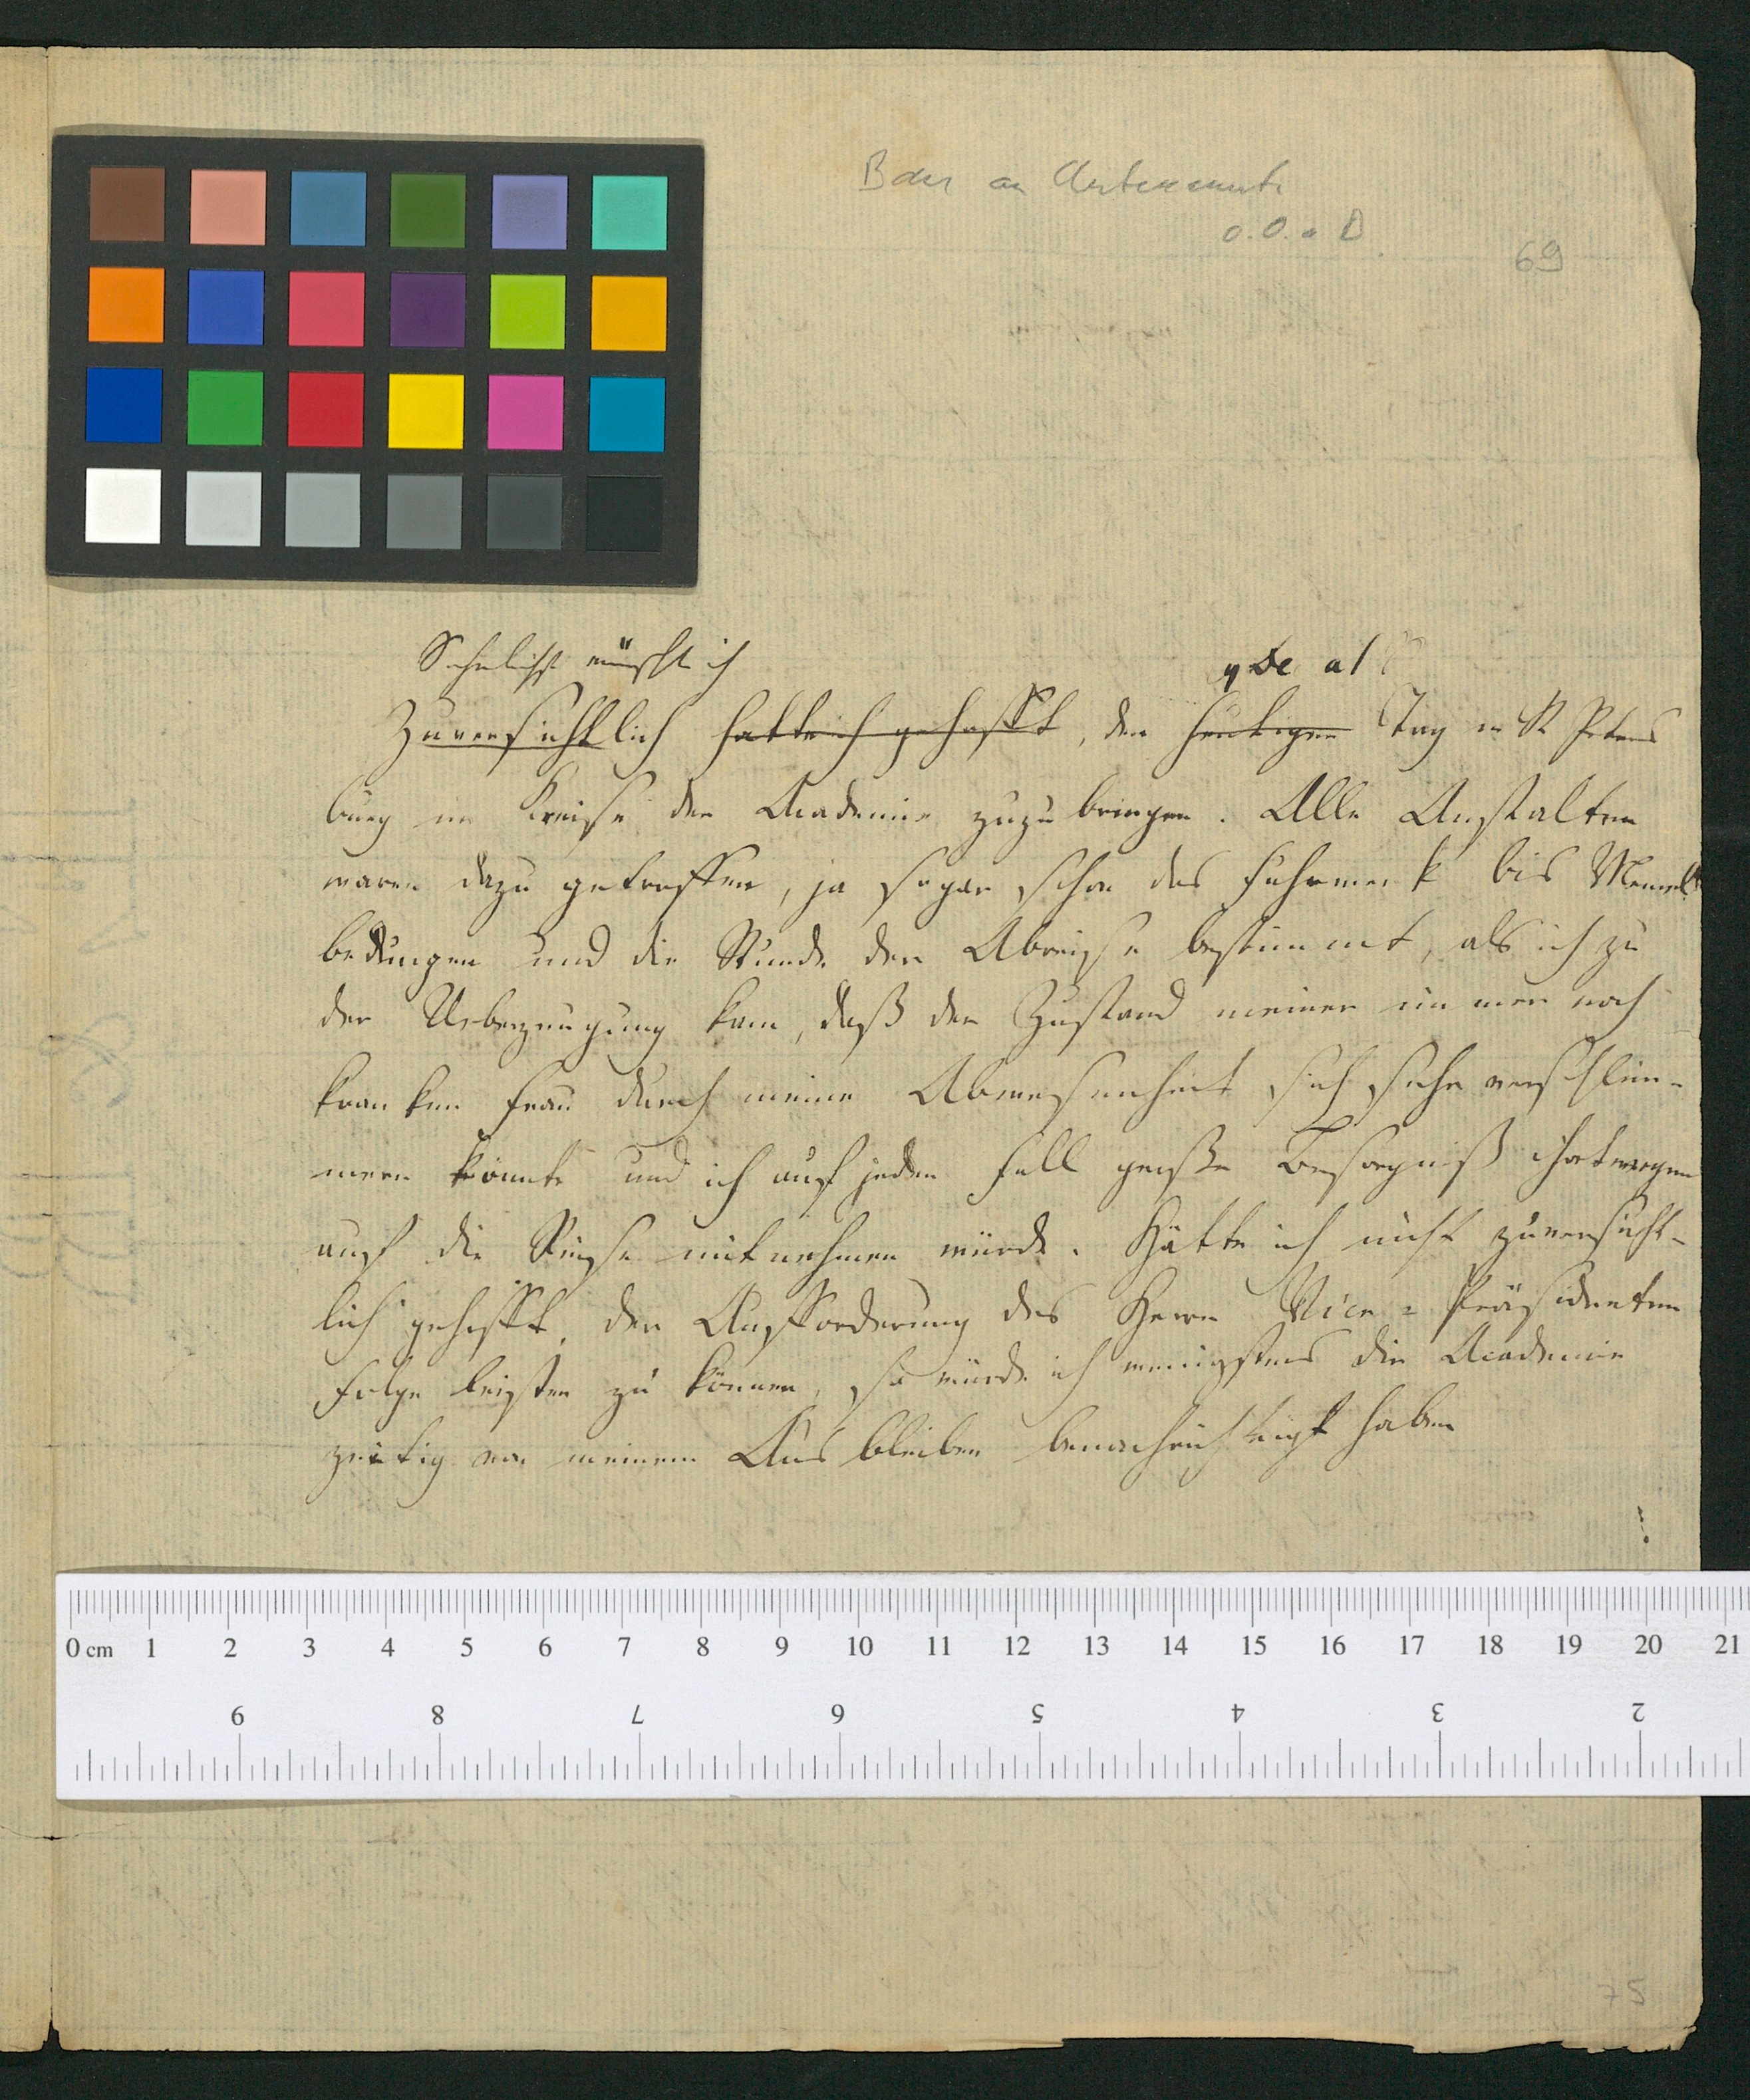 Baer an Unbekannt
o. O. u. D.
69
Sehnlichst wünschte ich
Zuversichtlich hatte ich gehofft, den heutigen Tag in St Peters
burg im Kreise der Academie zuzubringen. Alle Anstalten
waren dazu getroffen, ja sogar schon das Fuhrwerk bis Memel
bedungen und die Stunde der Abreise bestimmt, als ich zu
der Ueberzeugung kam, daß der Zustand meiner immer noch
kranken Frau durch meine Abwesenheit sich sehr verschlim-
mern könnte und ich auf jeden Fall große Besorgniß ihretwegen
auf die Reise mitnehmen würde. Hätte ich nicht zuversicht-
lich gehofft, der Aufforderung des Herrn Vice-Präsidenten
Folge leisten zu können, so würde ich wenigstens die Academie
zeitig von meinem Ausbleiben benachrichtigt haben
0 cm 1 2 3 4 5 6 7 8 9 10 11 12 13 14 15 16 17 18 19 20 21
9 8 7 6 5 4 3 2
75